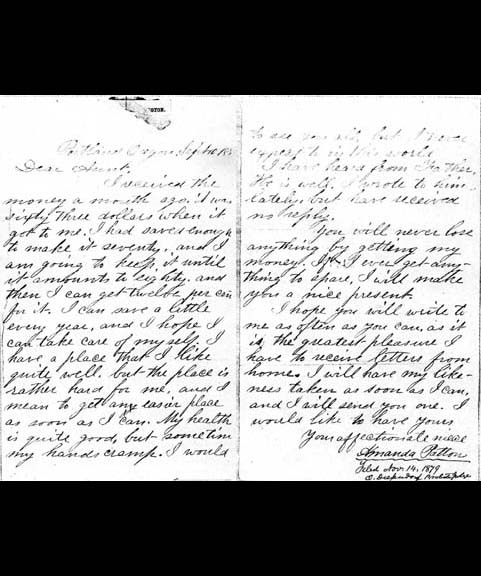 OSTON.
Portland Oregon, Sept
Dear Aunt,
I received the
money a month ago, it was
sixty three dollars when it
got to me. I had saved enough
to make it seventy, and I
am going to keep it until
it amounts to eighty, and
then I can get twelve per cen
for it. I can save a little
every year, and I hope I
can take care of myself. I
have a place that I like
quite well, but the place is
rather hard for me, and I
mean to get any easier place
as soon as I can. My health
is quite good, but sometim
my hands cramp. I would
to see you all, but I never
expect to in this world.
I have heard from Father,
He is well, I wrote to him
lately, but have received
no reply.
You will never lose
anything by getting my
money. If I ever get any-
thing to spare, I will make
you a nice present.
I hope you will write to
me as often as you can, as it
is the greatest pleasure I
have to receive letters from
home. I will have my like-
ness taken as soon as I can,
and I will send you one. I
would like to have yours
Your affectionate niece
Amanda Patton
Filed Nov. 14, 1879